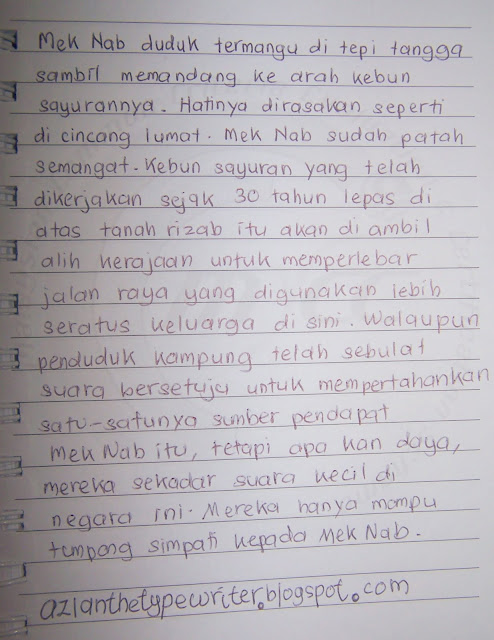 Mek Nab duduk termangu di tepi tangga
sambil memandang ke arah kebun
sayurannya. Hatinya dirasakan seperti
di cincang lumat. Mek Nab sudah patah
semangat. Kebun sayuran yang telah
dikerjakan sejak 30 tahun lepas di
atas tanah rizab itu akan di ambil
alih kerajaan untuk memperlebar
jalan raya yang digunakan lebih
seratus keluarga di sini. Walaupun
penduduk kampung telah sebulat
suara bersetuju untuk mempertahankan
satu-satunya sumber pendapat
Mek Nab itu, tetapi apa kan daya,
mereka sekadar suara kecil di
negara ini. Mereka hanya mampu
tumpang simpati kepada Mek Nab.
azianthetypewriter.blogspot.com